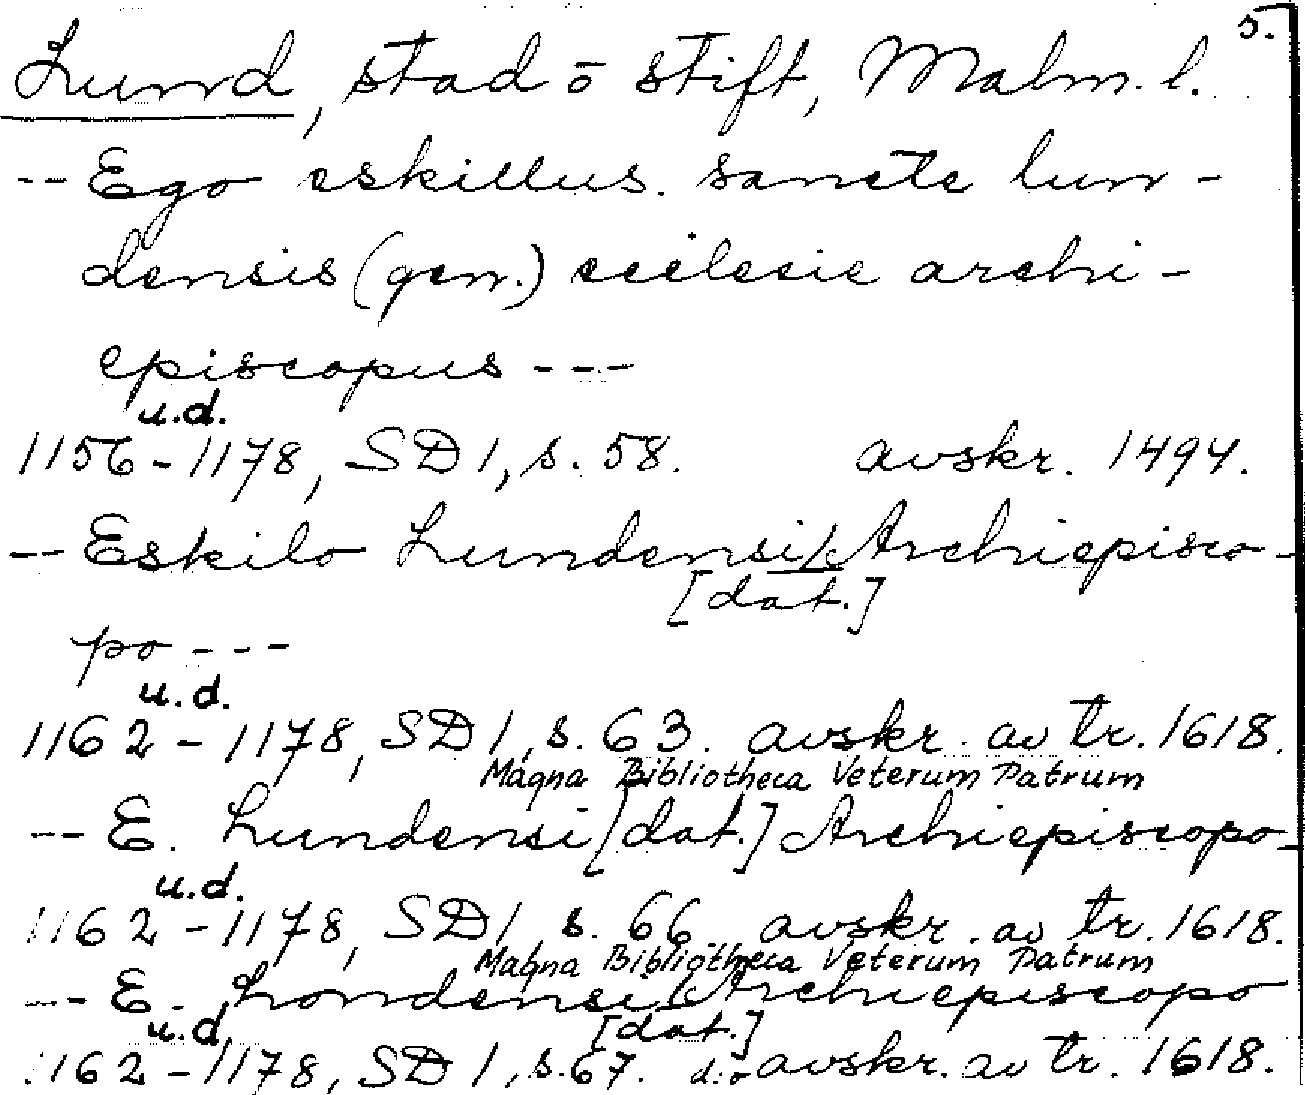 5.
Lund, stad o stift, Malm. l.
-- Ego eskillus. sancte lun-
densis (gen.) ecclesie archi-
episcopus ---
u.d.
1156-1178, SD 1, s. 58. avskr. 1494.
-- Eskilo Lundensi Archiepisco-
[dat.]
po ---
u.d.
1162-1178, SD 1, s. 63. avskr. av tr. 1618.
Magna Bibliotheca Veterum Patrum
-- E. Lundensi [dat.] Archiepiscopo-
u.d.
1162-1178, SD 1 s. 66 avskr. av tr. 1618.
Magna Bibliotheca Veterum Patrum
-- E. Londensi Archiepiscopo
u.d. [dat.]
1162-1178, SD 1, s. 67. d:o avskr. av tr. 1618.